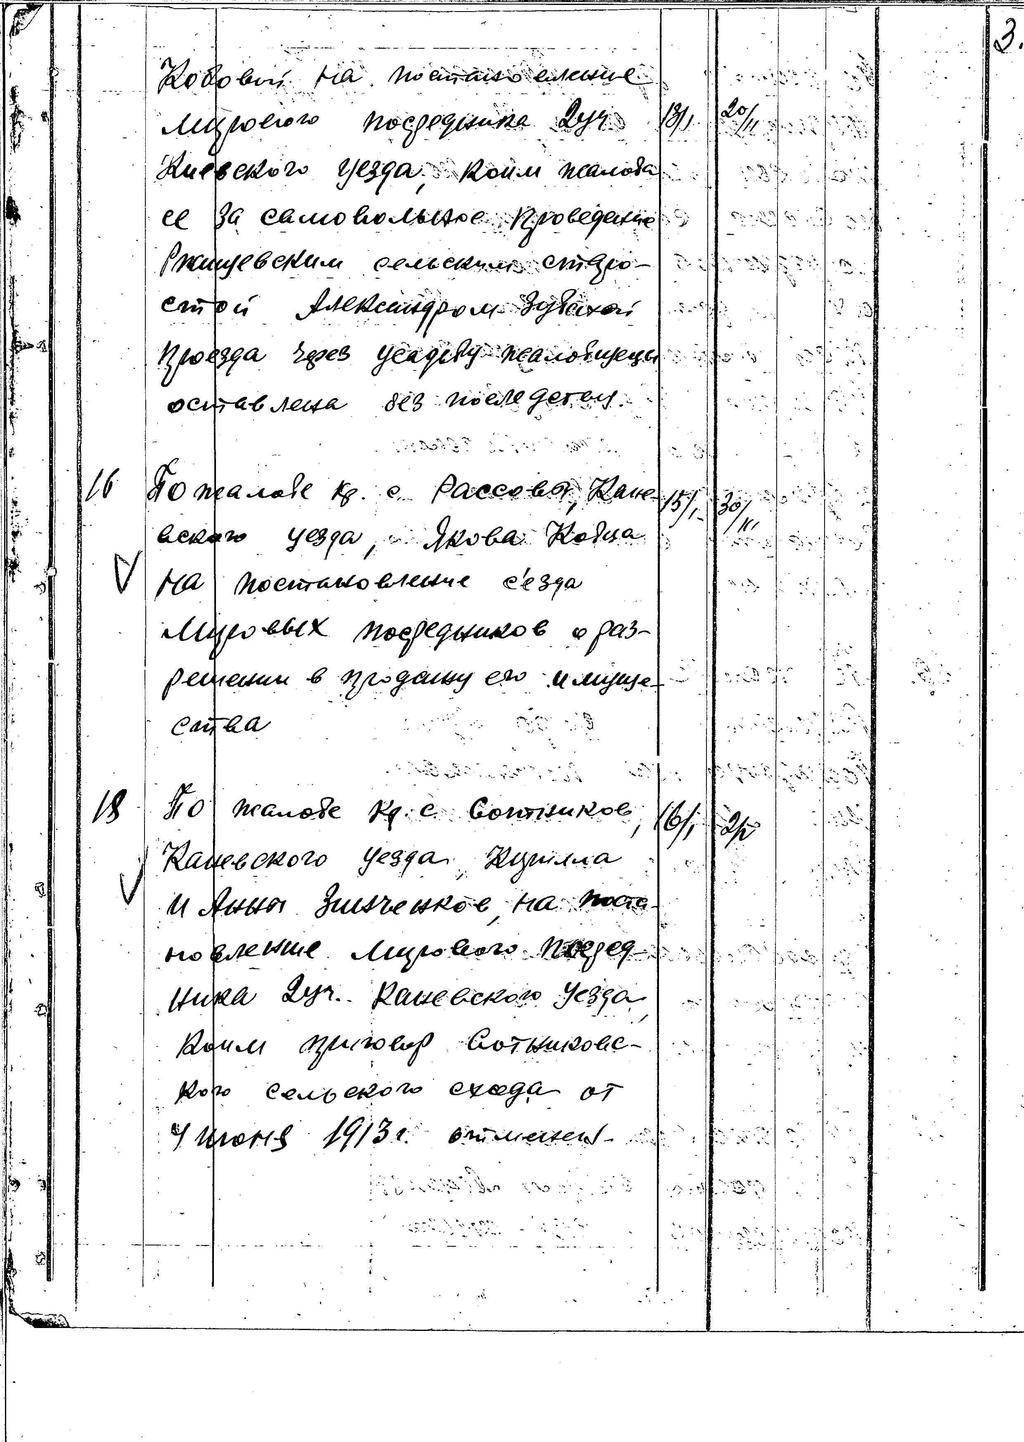 3.
Кобовой на постановление
Мирового посредника 2 уч. 13/I 20/II
Киевского уезда, коим жалоба
ее за самовольное проведение
Ржищевским сельским старо-
стой Александром Зубахой
проезда через усадьбу жалобщицы
оставлена без последств.
16 По жалобе кр. с. Рассовы, Кане- 15/I 30/
вского уезда, Якова Койца
на постановление с'езда
Мировых посредников о раз-
решении в продажу его имуще-
ства
18 По жалобе кр. с. Сотников, 16/I
Каневского уезда Кирилла
и Анны Зинченков, на поста-
новление Мирового посред-
ника 2 уч. Каневского уезда,
коим приговор Сотниковс-
кого сельского схода от
4 июня 1913 г. отменен.